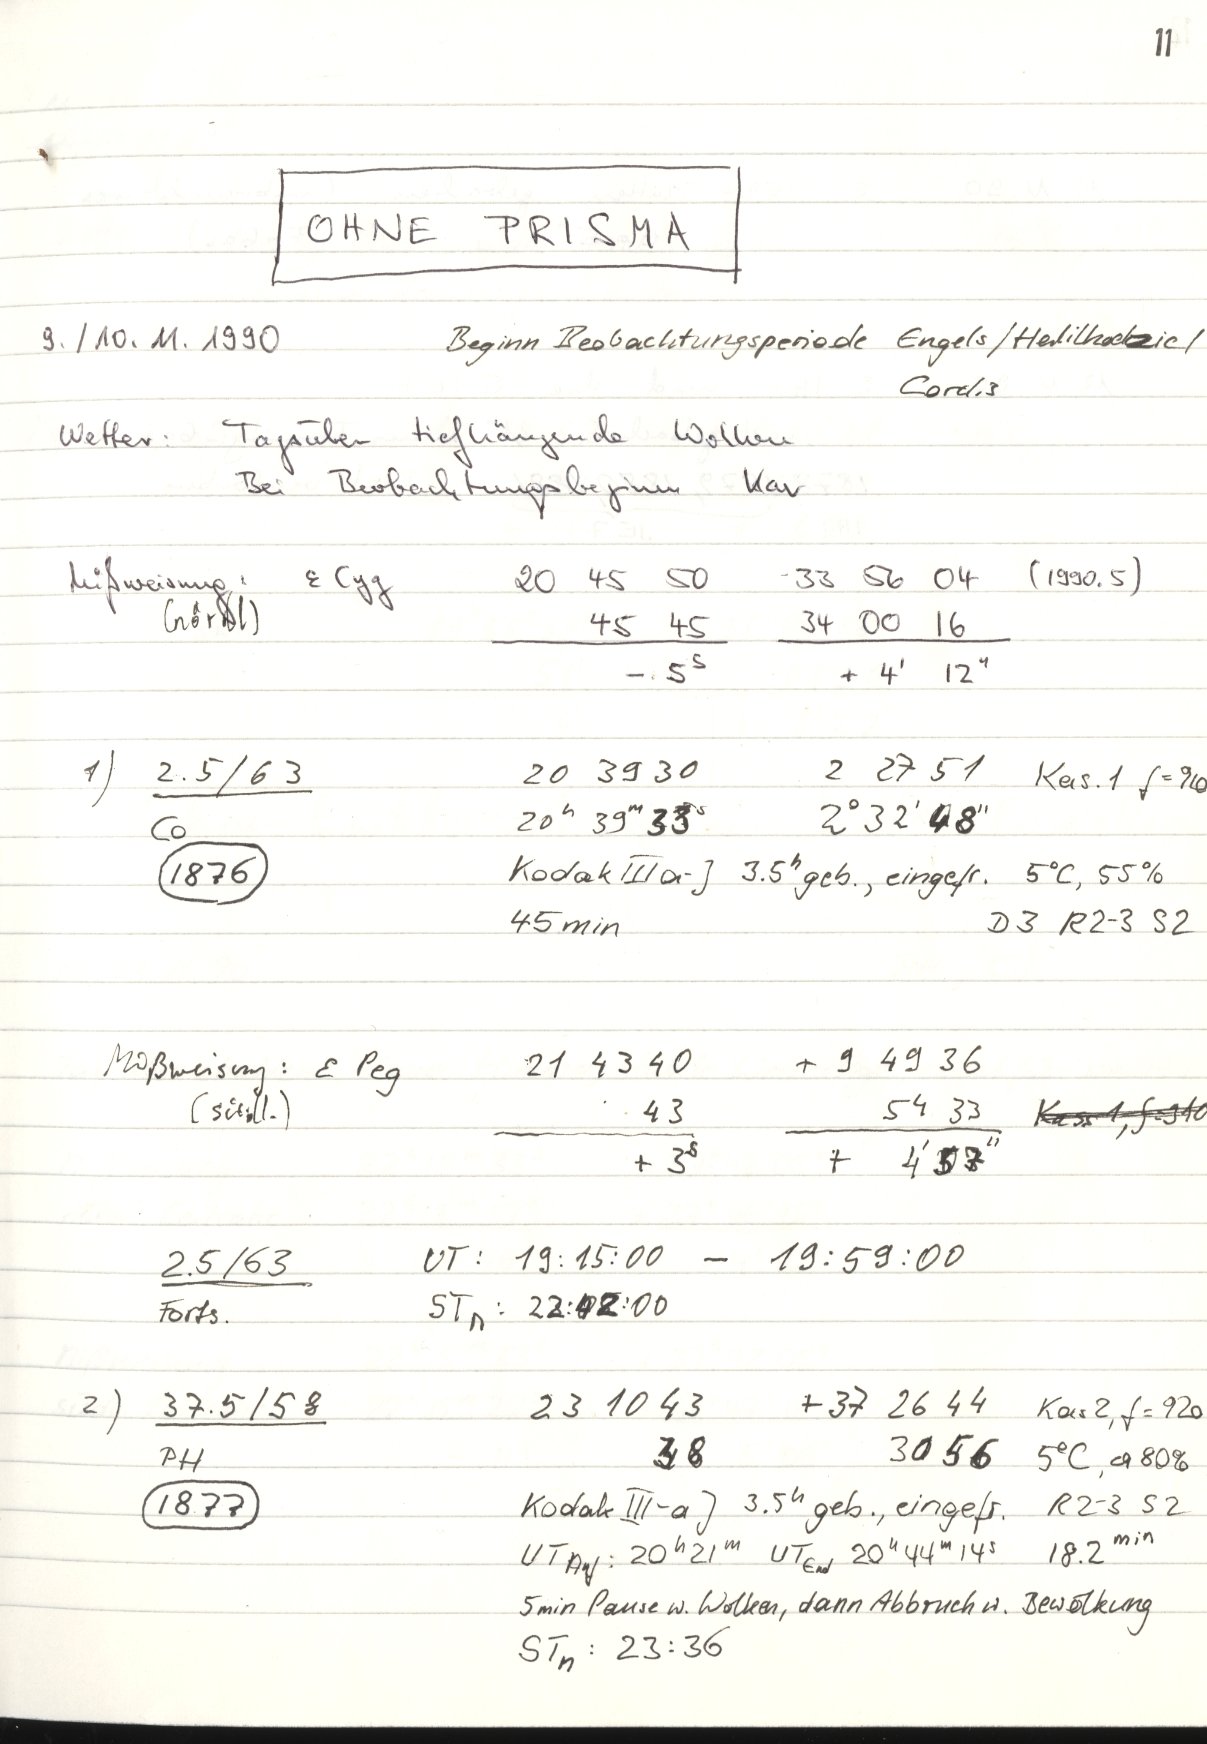 11
OHNE PRISMA
9./10. 11. 1990 Beginn Beobachtungsperiode Engels/
Cordis
Wetter: Tagsüber tiefhängende Wolken
Bei Beobachtungsbeginn klar
Mißweisung: ε Cyg 20 45 50 33 56 04 (1990.5)
(nördl) 45 45 34 00 16
- 5ˢ + 4' 12"
1) 2.5/63 20 39 30 2 27 51 Kas. 1 f=920
Co 20ʰ 39ᵐ 33ˢ 2° 32' 48"
1876 Kodak III a-J 3.5ʰ geb., eingefr. 5°C, 55%
45 min D3 R2-3 S2
Mißweisung: ε Peg 21 43 40 + 9 49 36
(südl.) 43 54 33 Kass 1, f=910
+ 3ˢ + 4' 57"
2.5/63 UT: 19:15:00 – 19:59:00
Forts. STₙ: 22:42:00
2) 37.5/58 23 10 43 +37 26 44 Kas 2, f=920
PH 38 30 56 5°C, ca 80%
1877 Kodak III-a J 3.5ʰ geb., eingefr. R2-3 S2
UT Anf: 20ʰ21ᵐ UT End 20ʰ44ᵐ14ˢ 18.2 min
5min Pause w. Wolken, dann Abbruch w. Bewölkung
STₙ: 23:36